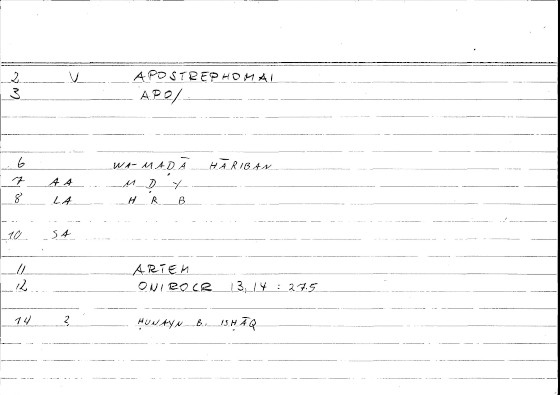 2 V APOSTREPHOMAI
3 APO/
6 WA-MAḌĀ HĀRIBAN
7 AA M Ḍ Y
8 LA H R B
10 SA
11 ARTEM
12 ONIROCR 13,14 : 275
14 2 ḤUNAYN B. ISḤĀQ